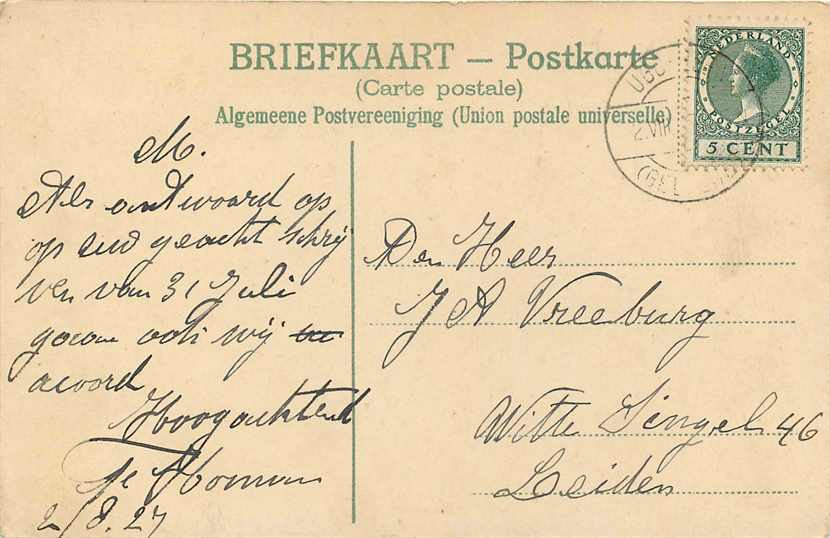 BRIEFKAART — Postkarte
(Carte postale)
Algemeene Postvereeniging (Union postale universelle)
NEDERLAND
POSTZEGEL
5 CENT
(GEL
M.
Als antwoord op
op uw geacht schrij
ven van 31 Juli
gaan ook wij
acoord
Hoogachtend
2/8.27
Den Heer
J A Vreeburg
Witte Singel 46
Leiden